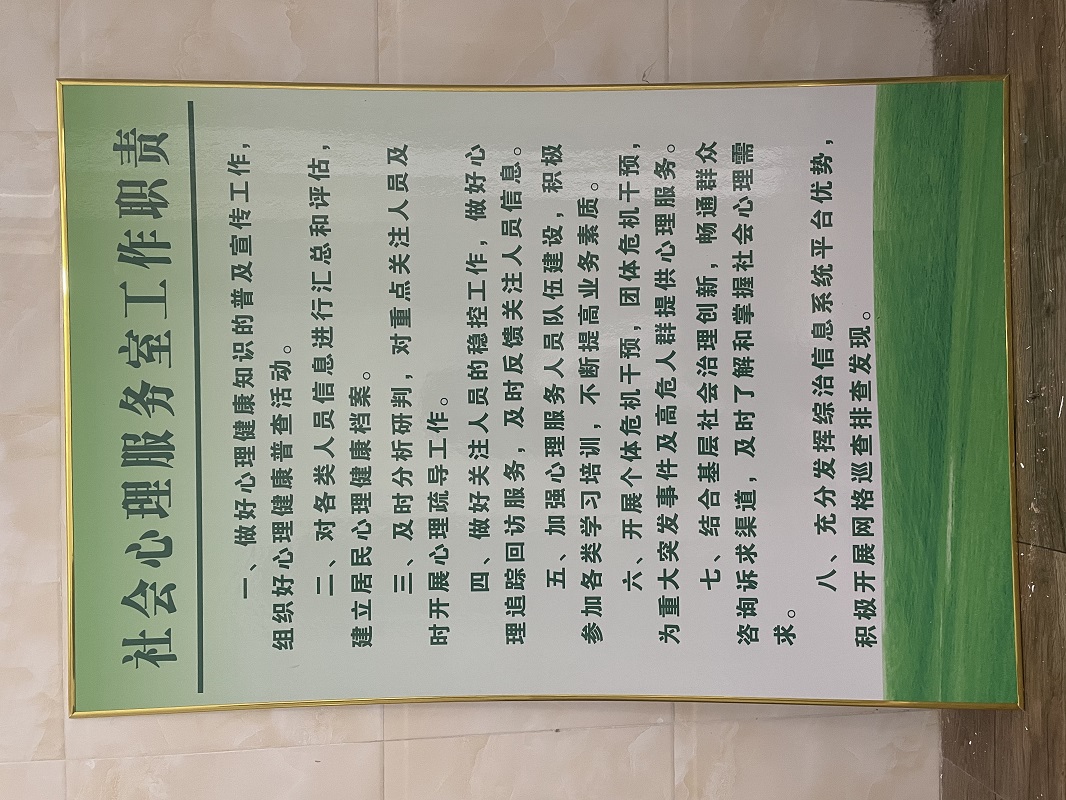 社会心理服务室工作职责
一、做好心理健康知识的普及宣传工作，
组织好心理健康普查活动。
二、对各类人员信息进行汇总和评估，
建立居民心理健康档案。
三、及时分析研判，对重点关注人员及
时开展心理疏导工作。
四、做好关注人员的稳控工作，做好心
理追踪回访服务，及时反馈关注人员信息。
五、加强心理服务人员队伍建设，积极
参加各类学习培训，不断提高业务素质。
六、开展个体危机干预，团体危机干预，
为重大突发事件及高危人群提供心理服务。
七、结合基层社会治理创新，畅通群众
咨询诉求渠道，及时了解和掌握社会心理需
求。
八、充分发挥综治信息系统平台优势，
积极开展网格巡查排查发现。